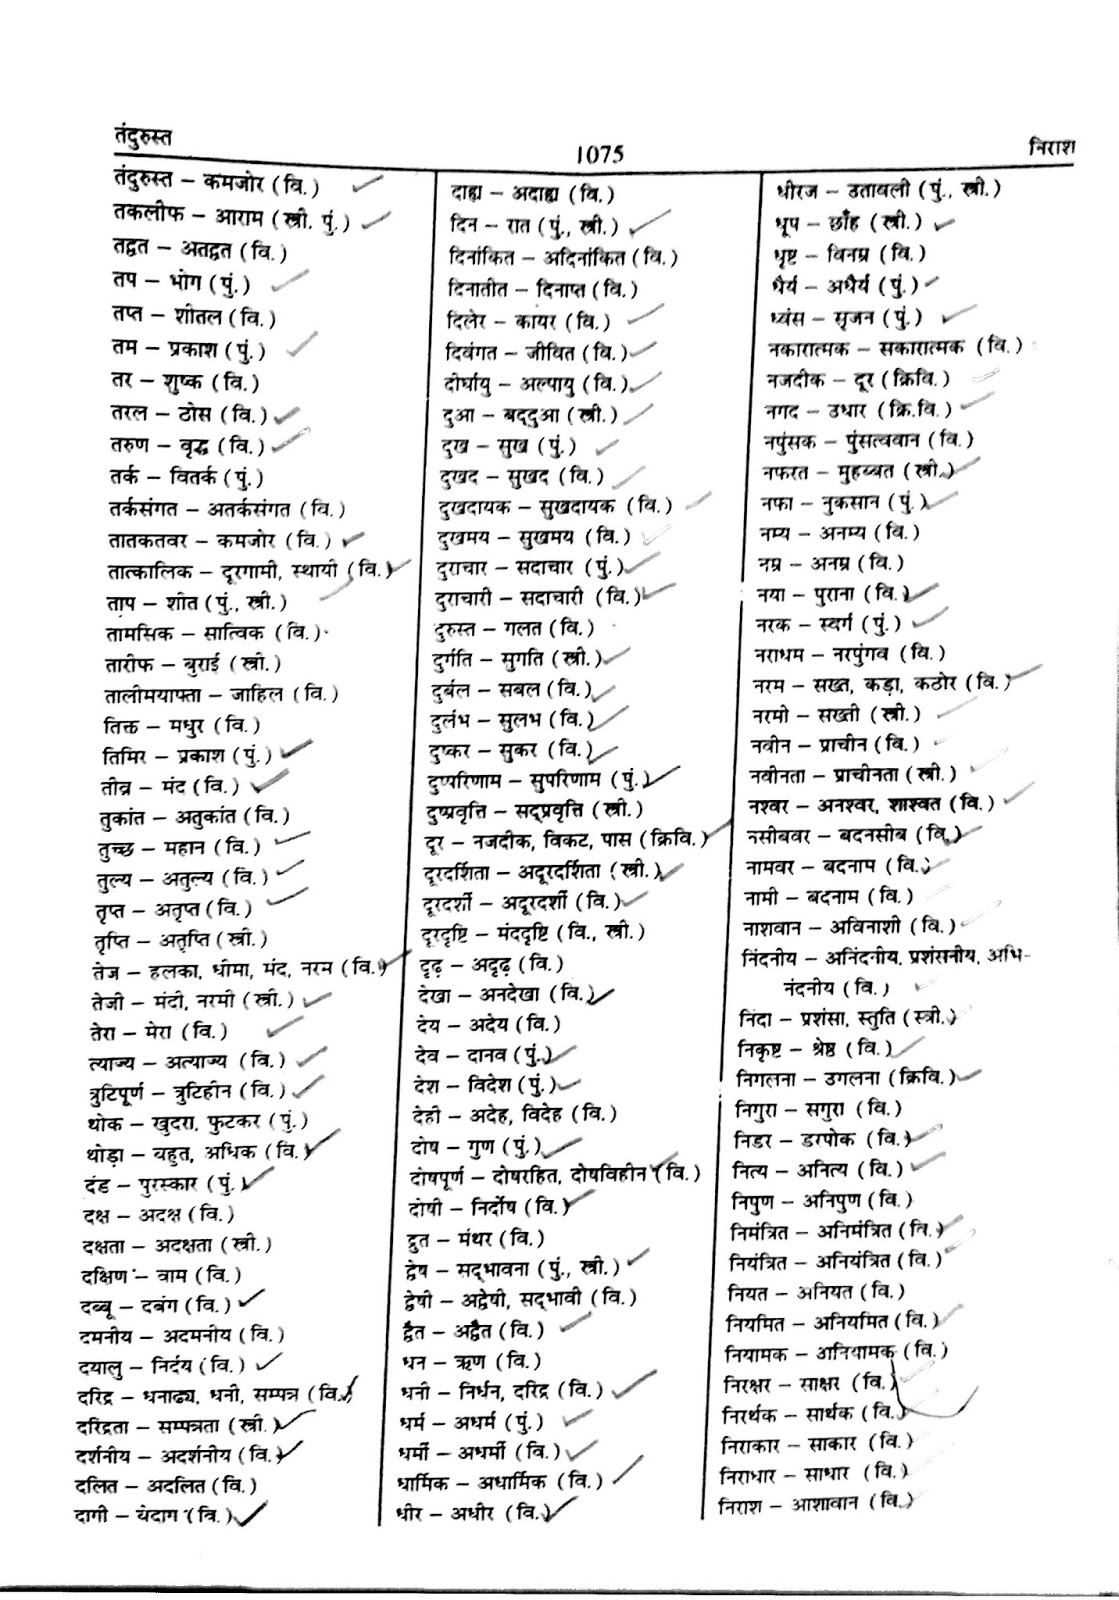 तंदुरुस्त
1075
निराश
तंदुरुस्त – कमजोर (वि.)
तकलीफ – आराम (स्त्री. पुं.)
तद्वत – अतद्वत (वि.)
तप – भोग (पुं.)
तप्त – शीतल (वि.)
तम – प्रकाश (पुं.)
तर – शुष्क (वि.)
तरल – ठोस (वि.)
तरुण – वृद्ध (वि.)
तर्क – वितर्क (पुं.)
तर्कसंगत – अतर्कसंगत (वि.)
तातकतवर – कमजोर (वि.)
तात्कालिक – दूरगामी, स्थायी (वि.)
ताप – शीत (पुं., स्त्री.)
तामसिक – सात्विक (वि.)
तारीफ – बुराई (स्त्री.)
तालीमयाफ्ता – जाहिल (वि.)
तिक्त – मधुर (वि.)
तिमिर – प्रकाश (पुं.)
तीव्र – मंद (वि.)
तुकांत – अतुकांत (वि.)
तुच्छ – महान (वि.)
तुल्य – अतुल्य (वि.)
तृप्त – अतृप्त (वि.)
तृप्ति – अतृप्ति (स्त्री.)
तेज – हलका, धीमा, मंद, नरम (वि.)
तेजी – मंदी, नरमी (स्त्री.)
तेरा – मेरा (वि.)
त्याज्य – अत्याज्य (वि.)
त्रुटिपूर्ण – त्रुटिहीन (वि.)
थोक – खुदरा, फुटकर (पुं.)
थोड़ा – बहुत, अधिक (वि.)
दंड – पुरस्कार (पुं.)
दक्ष – अदक्ष (वि.)
दक्षता – अदक्षता (स्त्री.)
दक्षिण – वाम (वि.)
दब्बू – दबंग (वि.)
दमनीय – अदमनीय (वि.)
दयालु – निर्दय (वि.)
दरिद्र – धनाढ्य, धनी, सम्पन्न (वि.)
दरिद्रता – सम्पन्नता (स्त्री.)
दर्शनीय – अदर्शनीय (वि.)
दलित – अदलित (वि.)
दागी – बेदाग (वि.)
दाह्य – अदाह्य (वि.)
दिन – रात (पुं., स्त्री.)
दिनांकित – अदिनांकित (वि.)
दिनातीत – दिनाप्त (वि.)
दिलेर – कायर (वि.)
दिवंगत – जीवित (वि.)
दीर्घायु – अल्पायु (वि.)
दुआ – बद्दुआ (स्त्री.)
दुख – सुख (पुं.)
दुखद – सुखद (वि.)
दुखदायक – सुखदायक (वि.)
दुखमय – सुखमय (वि.)
दुराचार – सदाचार (पुं.)
दुराचारी – सदाचारी (वि.)
दुरुस्त – गलत (वि.)
दुर्गति – सुगति (स्त्री.)
दुर्बल – सबल (वि.)
दुर्लभ – सुलभ (वि.)
दुष्कर – सुकर (वि.)
दुष्परिणाम – सुपरिणाम (पुं.)
दुष्प्रवृत्ति – सद्प्रवृत्ति (स्त्री.)
दूर – नजदीक, विकट, पास (क्रिवि.)
दूरदर्शिता – अदूरदर्शिता (स्त्री.)
दूरदर्शी – अदूरदर्शी (वि.)
दूरदृष्टि – मंददृष्टि (वि., स्त्री.)
दृढ़ – अदृढ़ (वि.)
देखा – अनदेखा (वि.)
देय – अदेय (वि.)
देव – दानव (पुं.)
देश – विदेश (पुं.)
देही – अदेह, विदेह (वि.)
दोष – गुण (पुं.)
दोषपूर्ण – दोषरहित, दोषविहीन (वि.)
दोषी – निर्दोष (वि.)
द्रुत – मंथर (वि.)
द्वेष – सद्भावना (पुं., स्त्री.)
द्वेषी – अद्वेषी, सद्भावी (वि.)
द्वैत – अद्वैत (वि.)
धन – ऋण (वि.)
धनी – निर्धन, दरिद्र (वि.)
धर्म – अधर्म (पुं.)
धर्मी – अधर्मी (वि.)
धार्मिक – अधार्मिक (वि.)
धीर – अधीर (वि.)
धीरज – उतावली (पुं., स्त्री.)
धूप – छाँह (स्त्री.)
धृष्ट – विनम्र (वि.)
धैर्य – अधैर्य (पुं.)
ध्वंस – सृजन (पुं.)
नकारात्मक – सकारात्मक (वि.)
नजदीक – दूर (क्रिवि.)
नगद – उधार (क्रि.वि.)
नपुंसक – पुंसत्ववान (वि.)
नफरत – मुहब्बत (स्त्री.)
नफा – नुकसान (पुं.)
नम्य – अनम्य (वि.)
नम्र – अनम्र (वि.)
नया – पुराना (वि.)
नरक – स्वर्ग (पुं.)
नराधम – नरपुंगव (वि.)
नरम – सख्त, कड़ा, कठोर (वि.)
नरमी – सख्ती (स्त्री.)
नवीन – प्राचीन (वि.)
नवीनता – प्राचीनता (स्त्री.)
नश्वर – अनश्वर, शाश्वत (वि.)
नसीबवर – बदनसीब (वि.)
नामवर – बदनाम (वि.)
नामी – बदनाम (वि.)
नाशवान – अविनाशी (वि.)
निंदनीय – अनिंदनीय, प्रशंसनीय, अभि-
नंदनीय (वि.)
निंदा – प्रशंसा, स्तुति (स्त्री.)
निकृष्ट – श्रेष्ठ (वि.)
निगलना – उगलना (क्रिवि.)
निगुरा – सगुरा (वि.)
निडर – डरपोक (वि.)
नित्य – अनित्य (वि.)
निपुण – अनिपुण (वि.)
निमंत्रित – अनिमंत्रित (वि.)
नियंत्रित – अनियंत्रित (वि.)
नियत – अनियत (वि.)
नियमित – अनियमित (वि.)
नियामक – अनियामक (वि.)
निरक्षर – साक्षर (वि.)
निरर्थक – सार्थक (वि.)
निराकार – साकार (वि.)
निराधार – साधार (वि.)
निराश – आशावान (वि.)